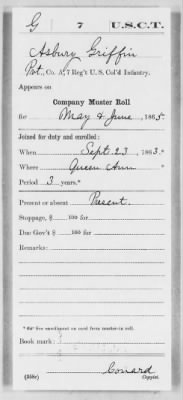 G | 7 | U.S.C.T.
Asbury Griffin
Pvt., Co. A, 7 Reg't U.S. Col'd Infantry.
Appears on
Company Muster Roll
for May & June, 1865.
Joined for duty and enrolled:
When Sept. 23, 1863.*
Where Queen Ann
Period 3 years.*
Present or absent Present.
Stoppage, $ 100 for
Due Gov't $ 100 for
Remarks:
*See enrollment on card from muster-in roll.
Book mark:
Conard
(358c) Copyist.